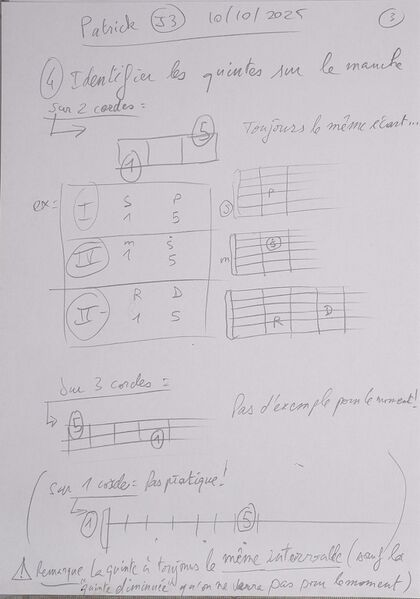 Patrick J3 10/10/2025 3
4 Identifier les quintes sur le manche
Sur 2 cordes =
Toujours le même écart...
5
1
ex= I S P
1 5
S P
IV m S
1 5
m S
II R D
1 5
R D
Sur 3 cordes =
Pas d'exemple pour le moment!
5
1
Sur 1 corde = Pas pratique!
1 5
Remarque La quinte à toujours le même intervalle (sauf la
"quinte diminuée" qu'on ne verra pas pour le moment)